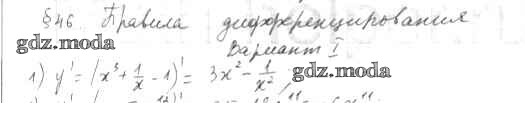 §46. Правила дифференцирования
gdz.moda
Вариант I
1) y' = (x³ + 1/x - 1)' = 3x² - 1/x²,
gdz.moda